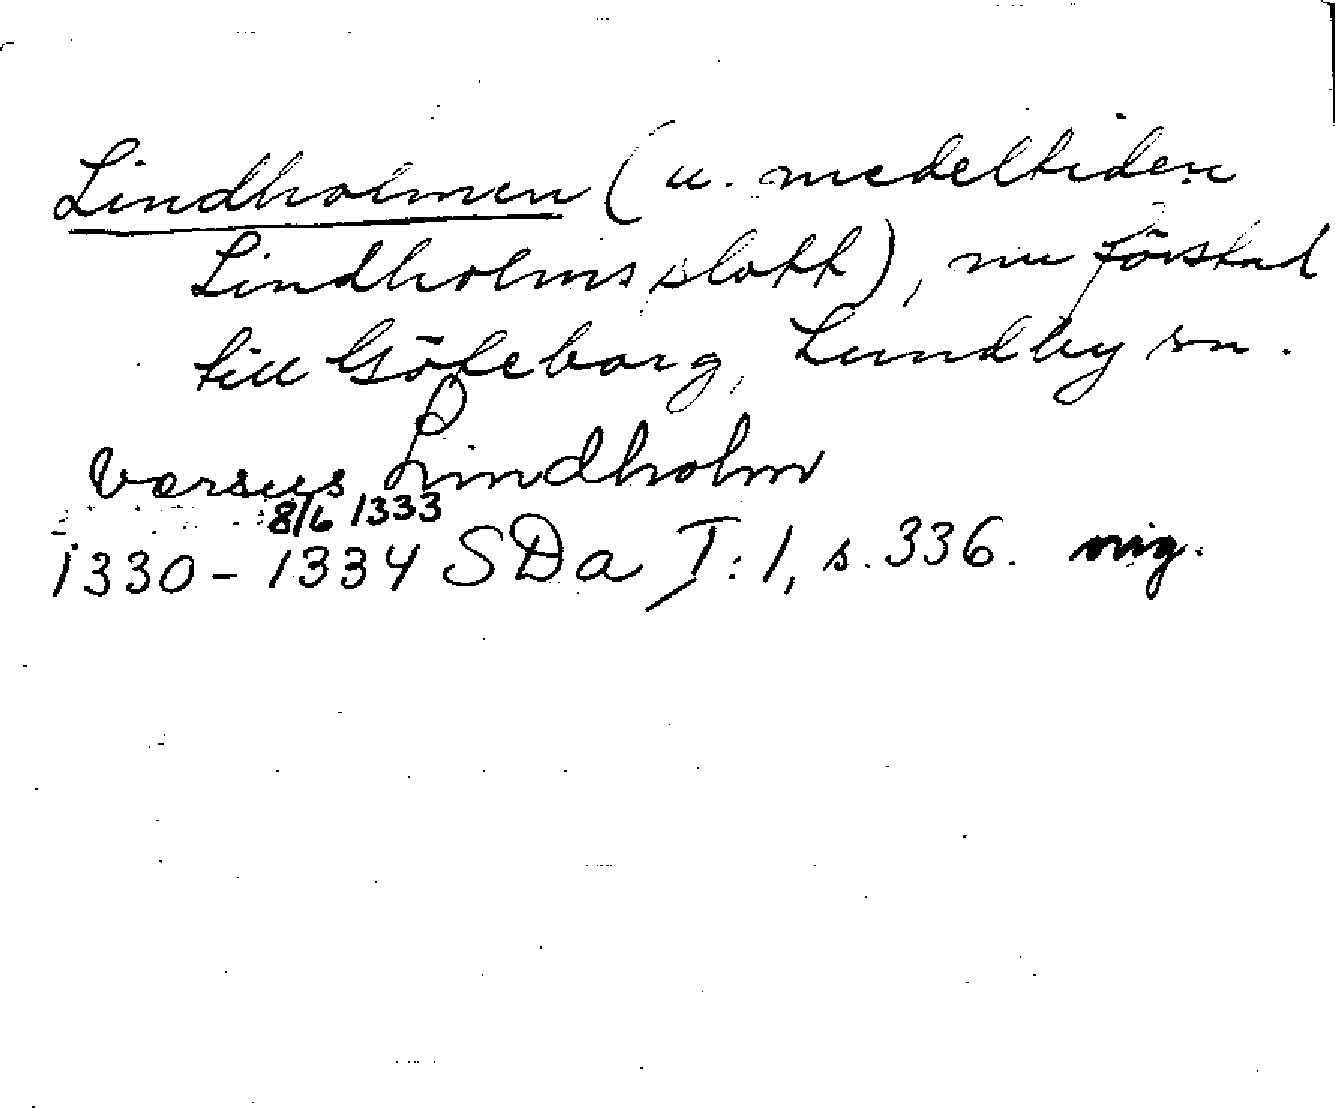 Lindholmen (u. medeltiden
Lindholms slott), nu förstad
till Göteborg, Lundby sn.
versus Lindholm
8/6 1333
1330-1334 SDa I:1, s. 336. orig.